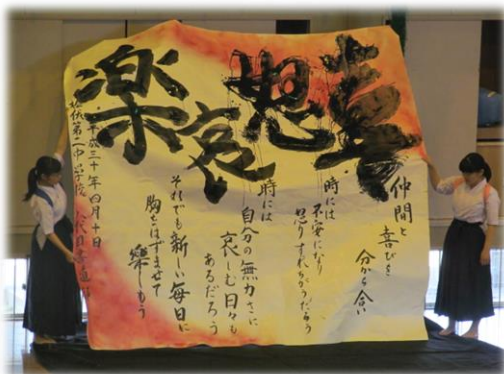 喜怒哀楽
仲間と
喜びを
分かち合い
時には
不安になり
怒りすれちがうだろう
時には
自分の無力さに
哀しむ日々も
あるだろう
それでも新しい毎日に
胸をはずませて
楽しもう
平成三十年四月十日
第二中学校 代目書道部